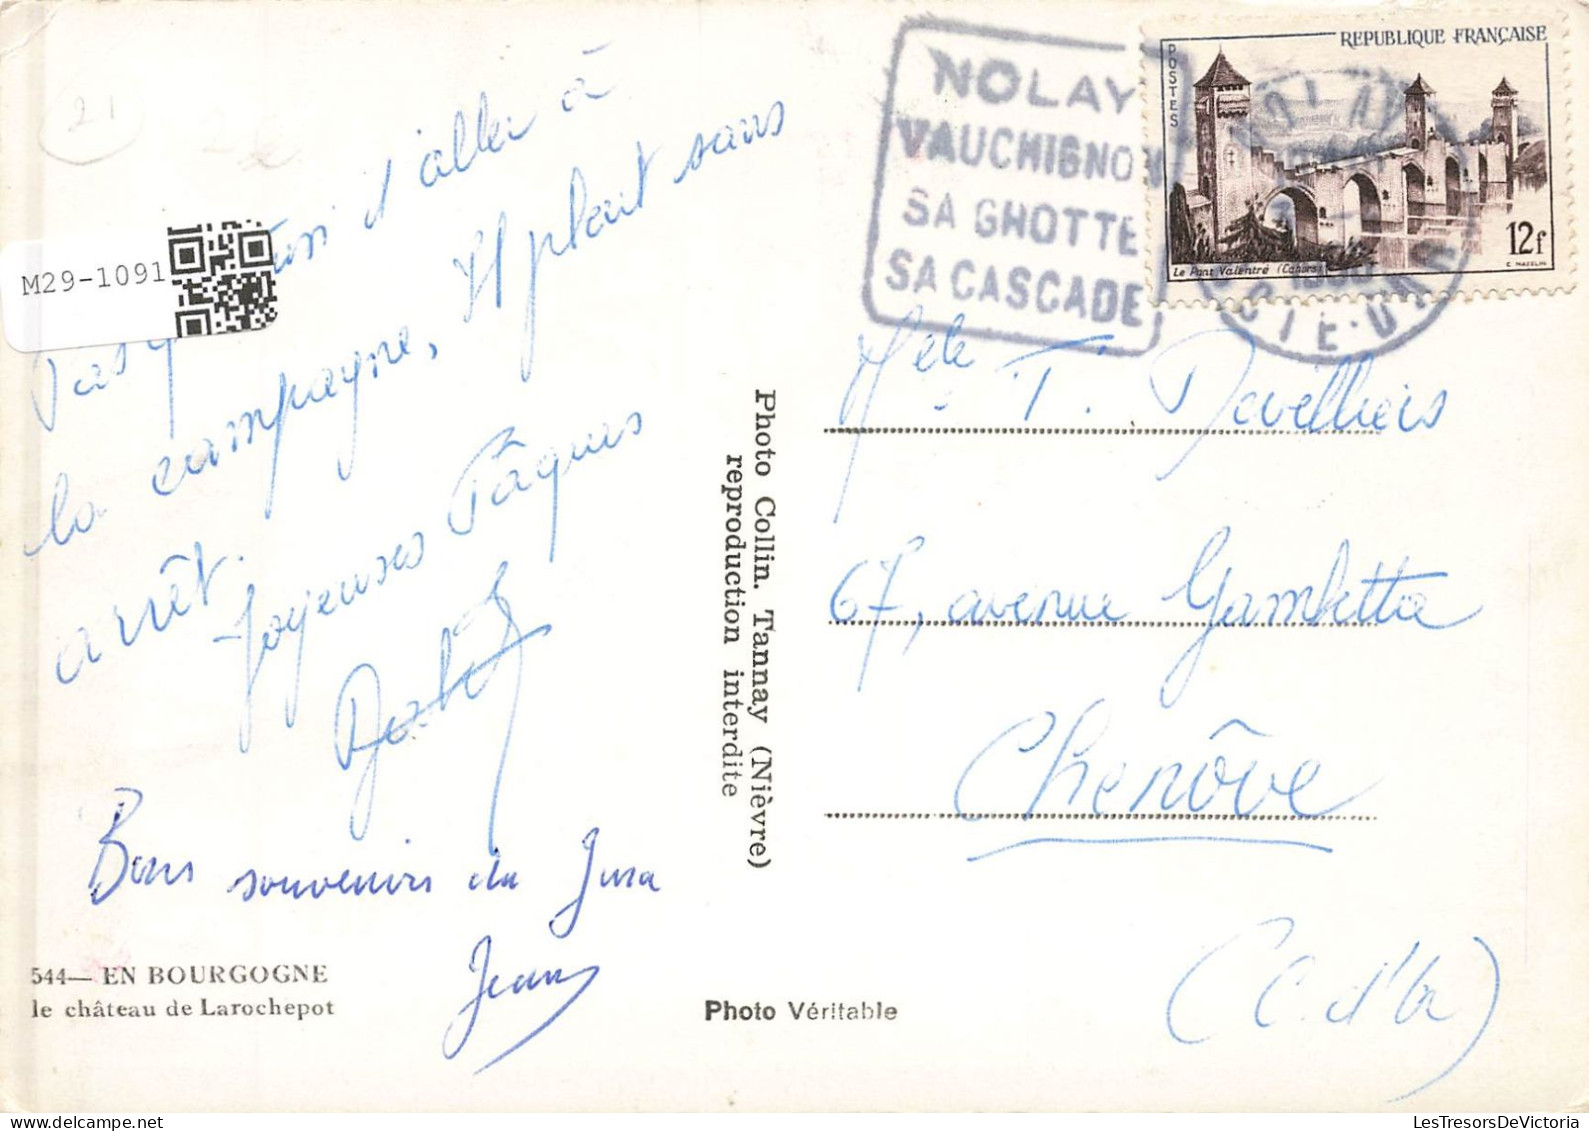 21
M29-1091
Pas d'aller à
la campagne, Il pleut sans
arrêt.
Joyeuses Pâques
Bons souvenirs du Jura
Jean
544— EN BOURGOGNE
le château de Larochepot
Photo Véritable
Photo Collin. Tannay (Nièvre)
reproduction interdite
NOLAY
VAUCHIGNON
SA GROTTE
SA CASCADE
REPUBLIQUE FRANÇAISE
POSTES
12f
Le Pont Valentré (Cahors)
C. MAZELIN
Melle T. Devilliers
67, avenue Gambetta
Chenôve
(C. d'Or)
LesTresorsDeVictoria